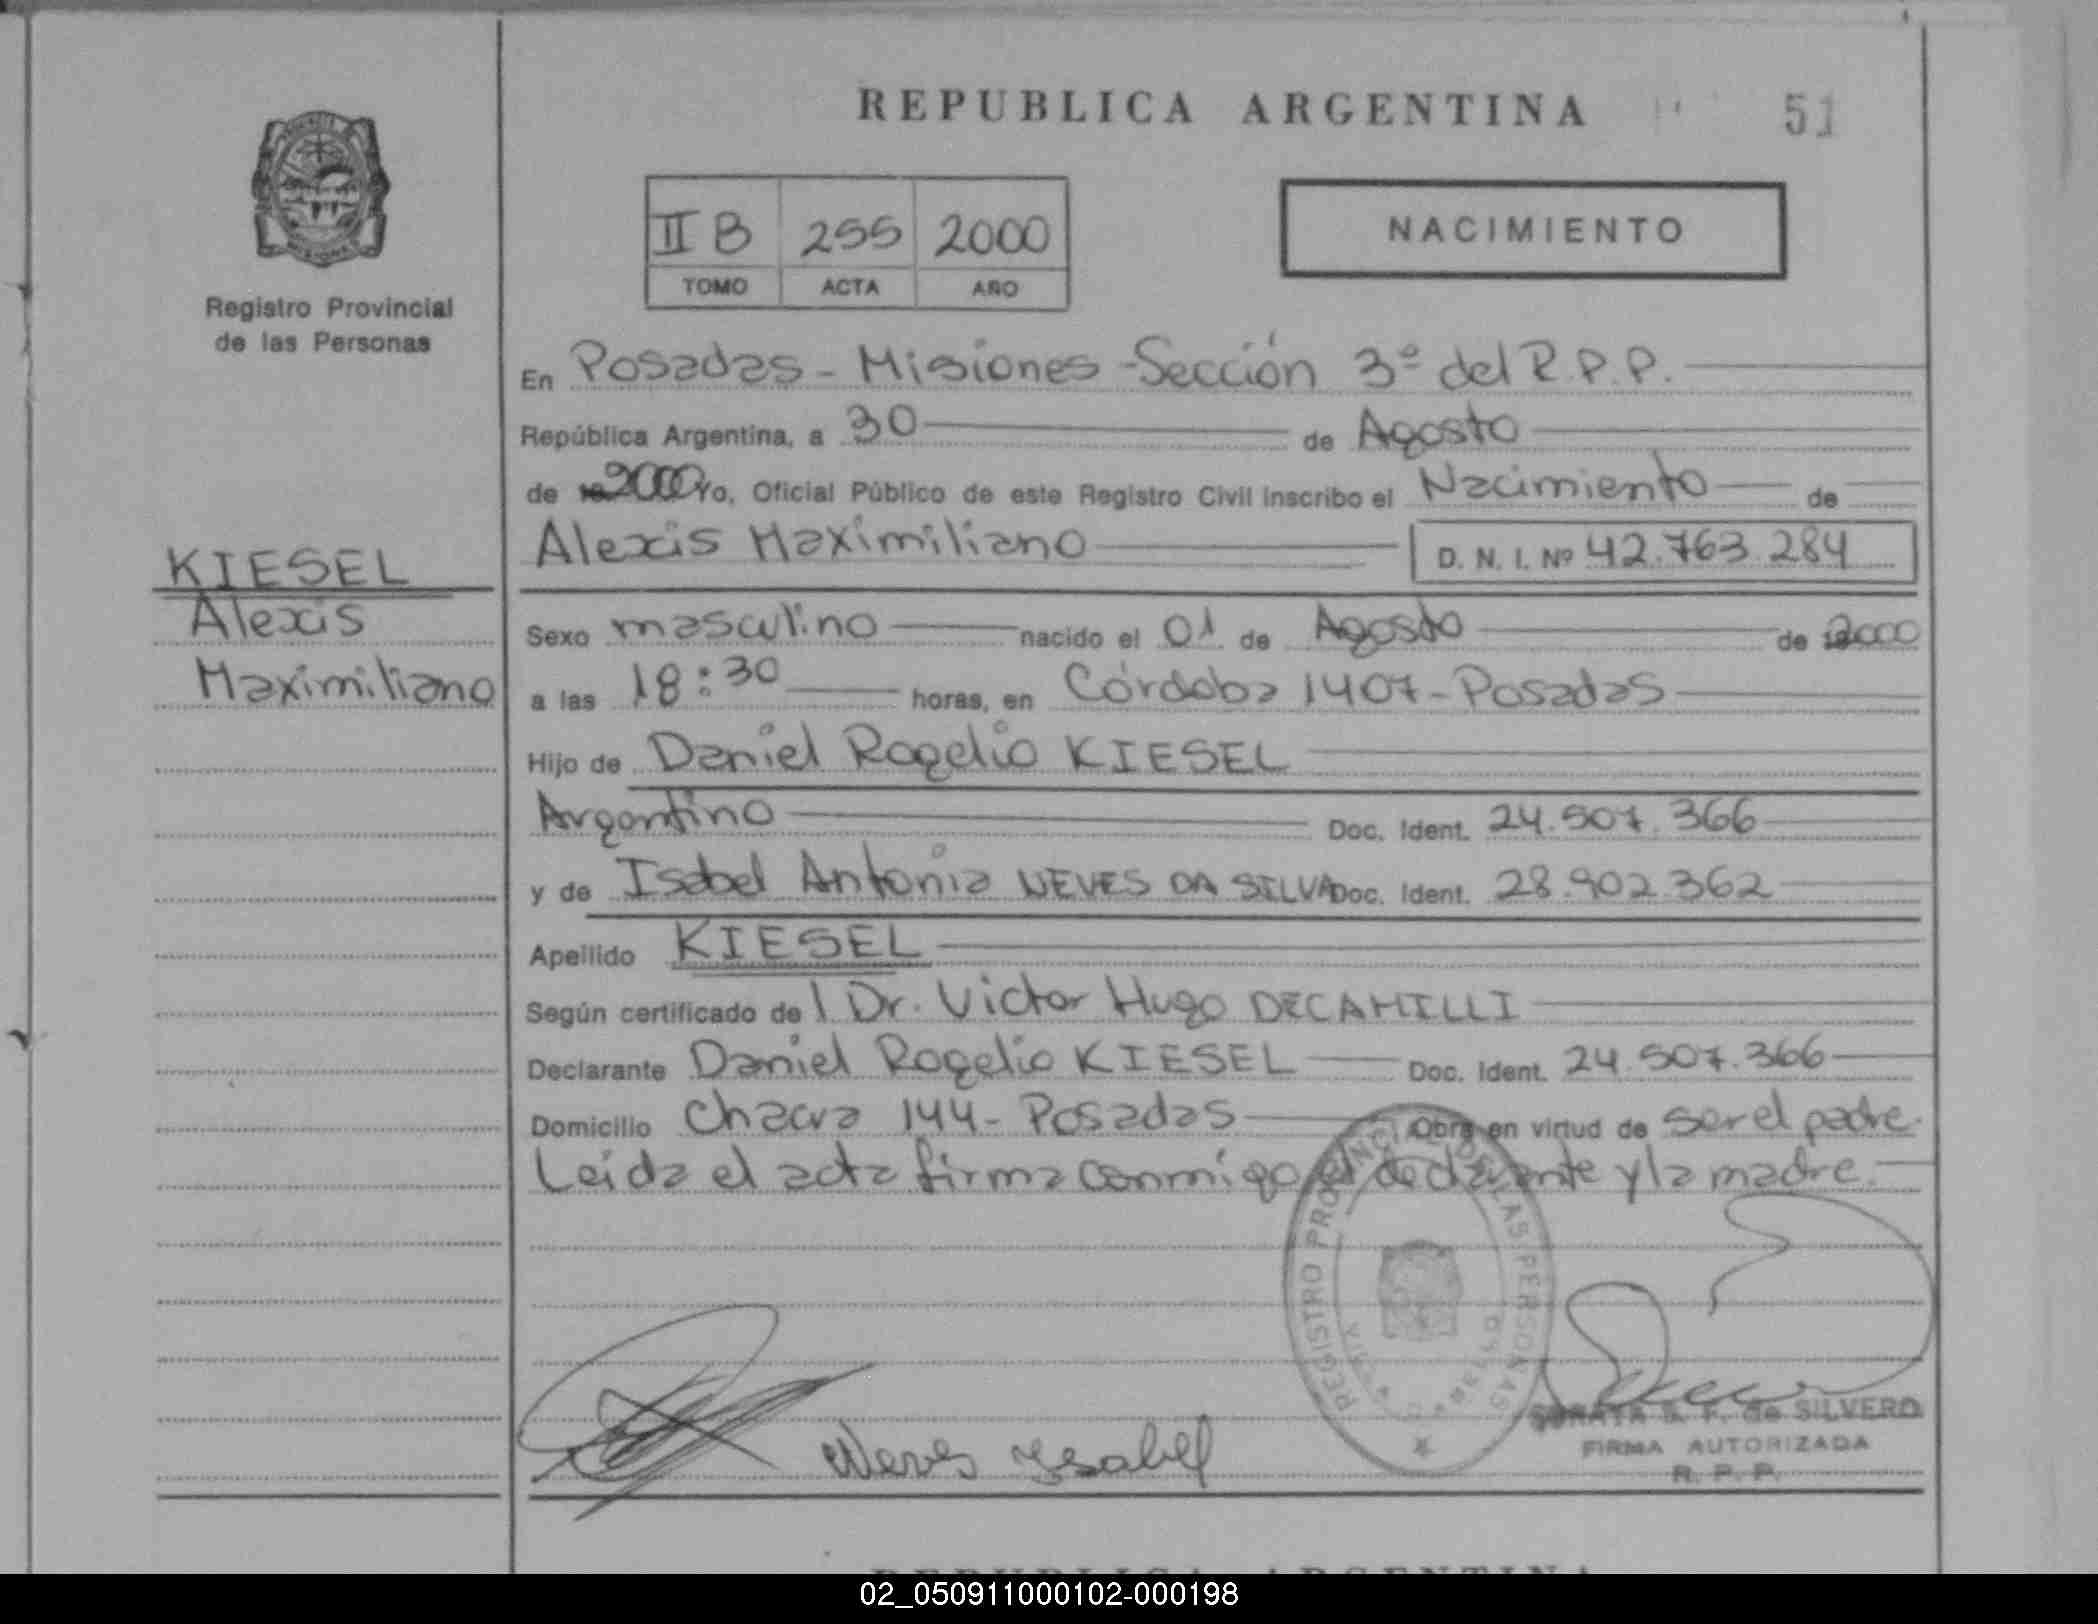 REPUBLICA ARGENTINA 51
II B 255 2000
TOMO ACTA AÑO
NACIMIENTO
Registro Provincial
de las Personas
En Posadas - Misiones - Sección 3ª del R.P.P.
República Argentina, a 30 de Agosto
de 2000 Yo, Oficial Público de este Registro Civil inscribo el Nacimiento de
Alexis Maximiliano D. N. I. Nº 42.763.284
KIESEL
Alexis
Maximiliano
Sexo masculino nacido el 01 de Agosto de 2000
a las 18:30 horas, en Córdoba 1407 - Posadas
Hijo de Daniel Rogelio KIESEL
Argentino Doc. Ident. 24.507.366
y de Isabel Antonia NEVES DA SILVA Doc. Ident. 28.902.362
Apellido KIESEL
Según certificado del Dr. Victor Hugo DECAMILLI
Declarante Daniel Rogelio KIESEL Doc. Ident. 24.507.366
Domicilio Chacra 144 - Posadas Obra en virtud de ser el padre.
Leída el acta firma conmigo el declarante y la madre.
REGISTRO PROVINCIAL DE LAS PERSONAS
Neves Ysabel
S. F. de SILVERO
FIRMA AUTORIZADA
R. P. P.
REPUBLICA ARGENTINA
02_050911000102-000198